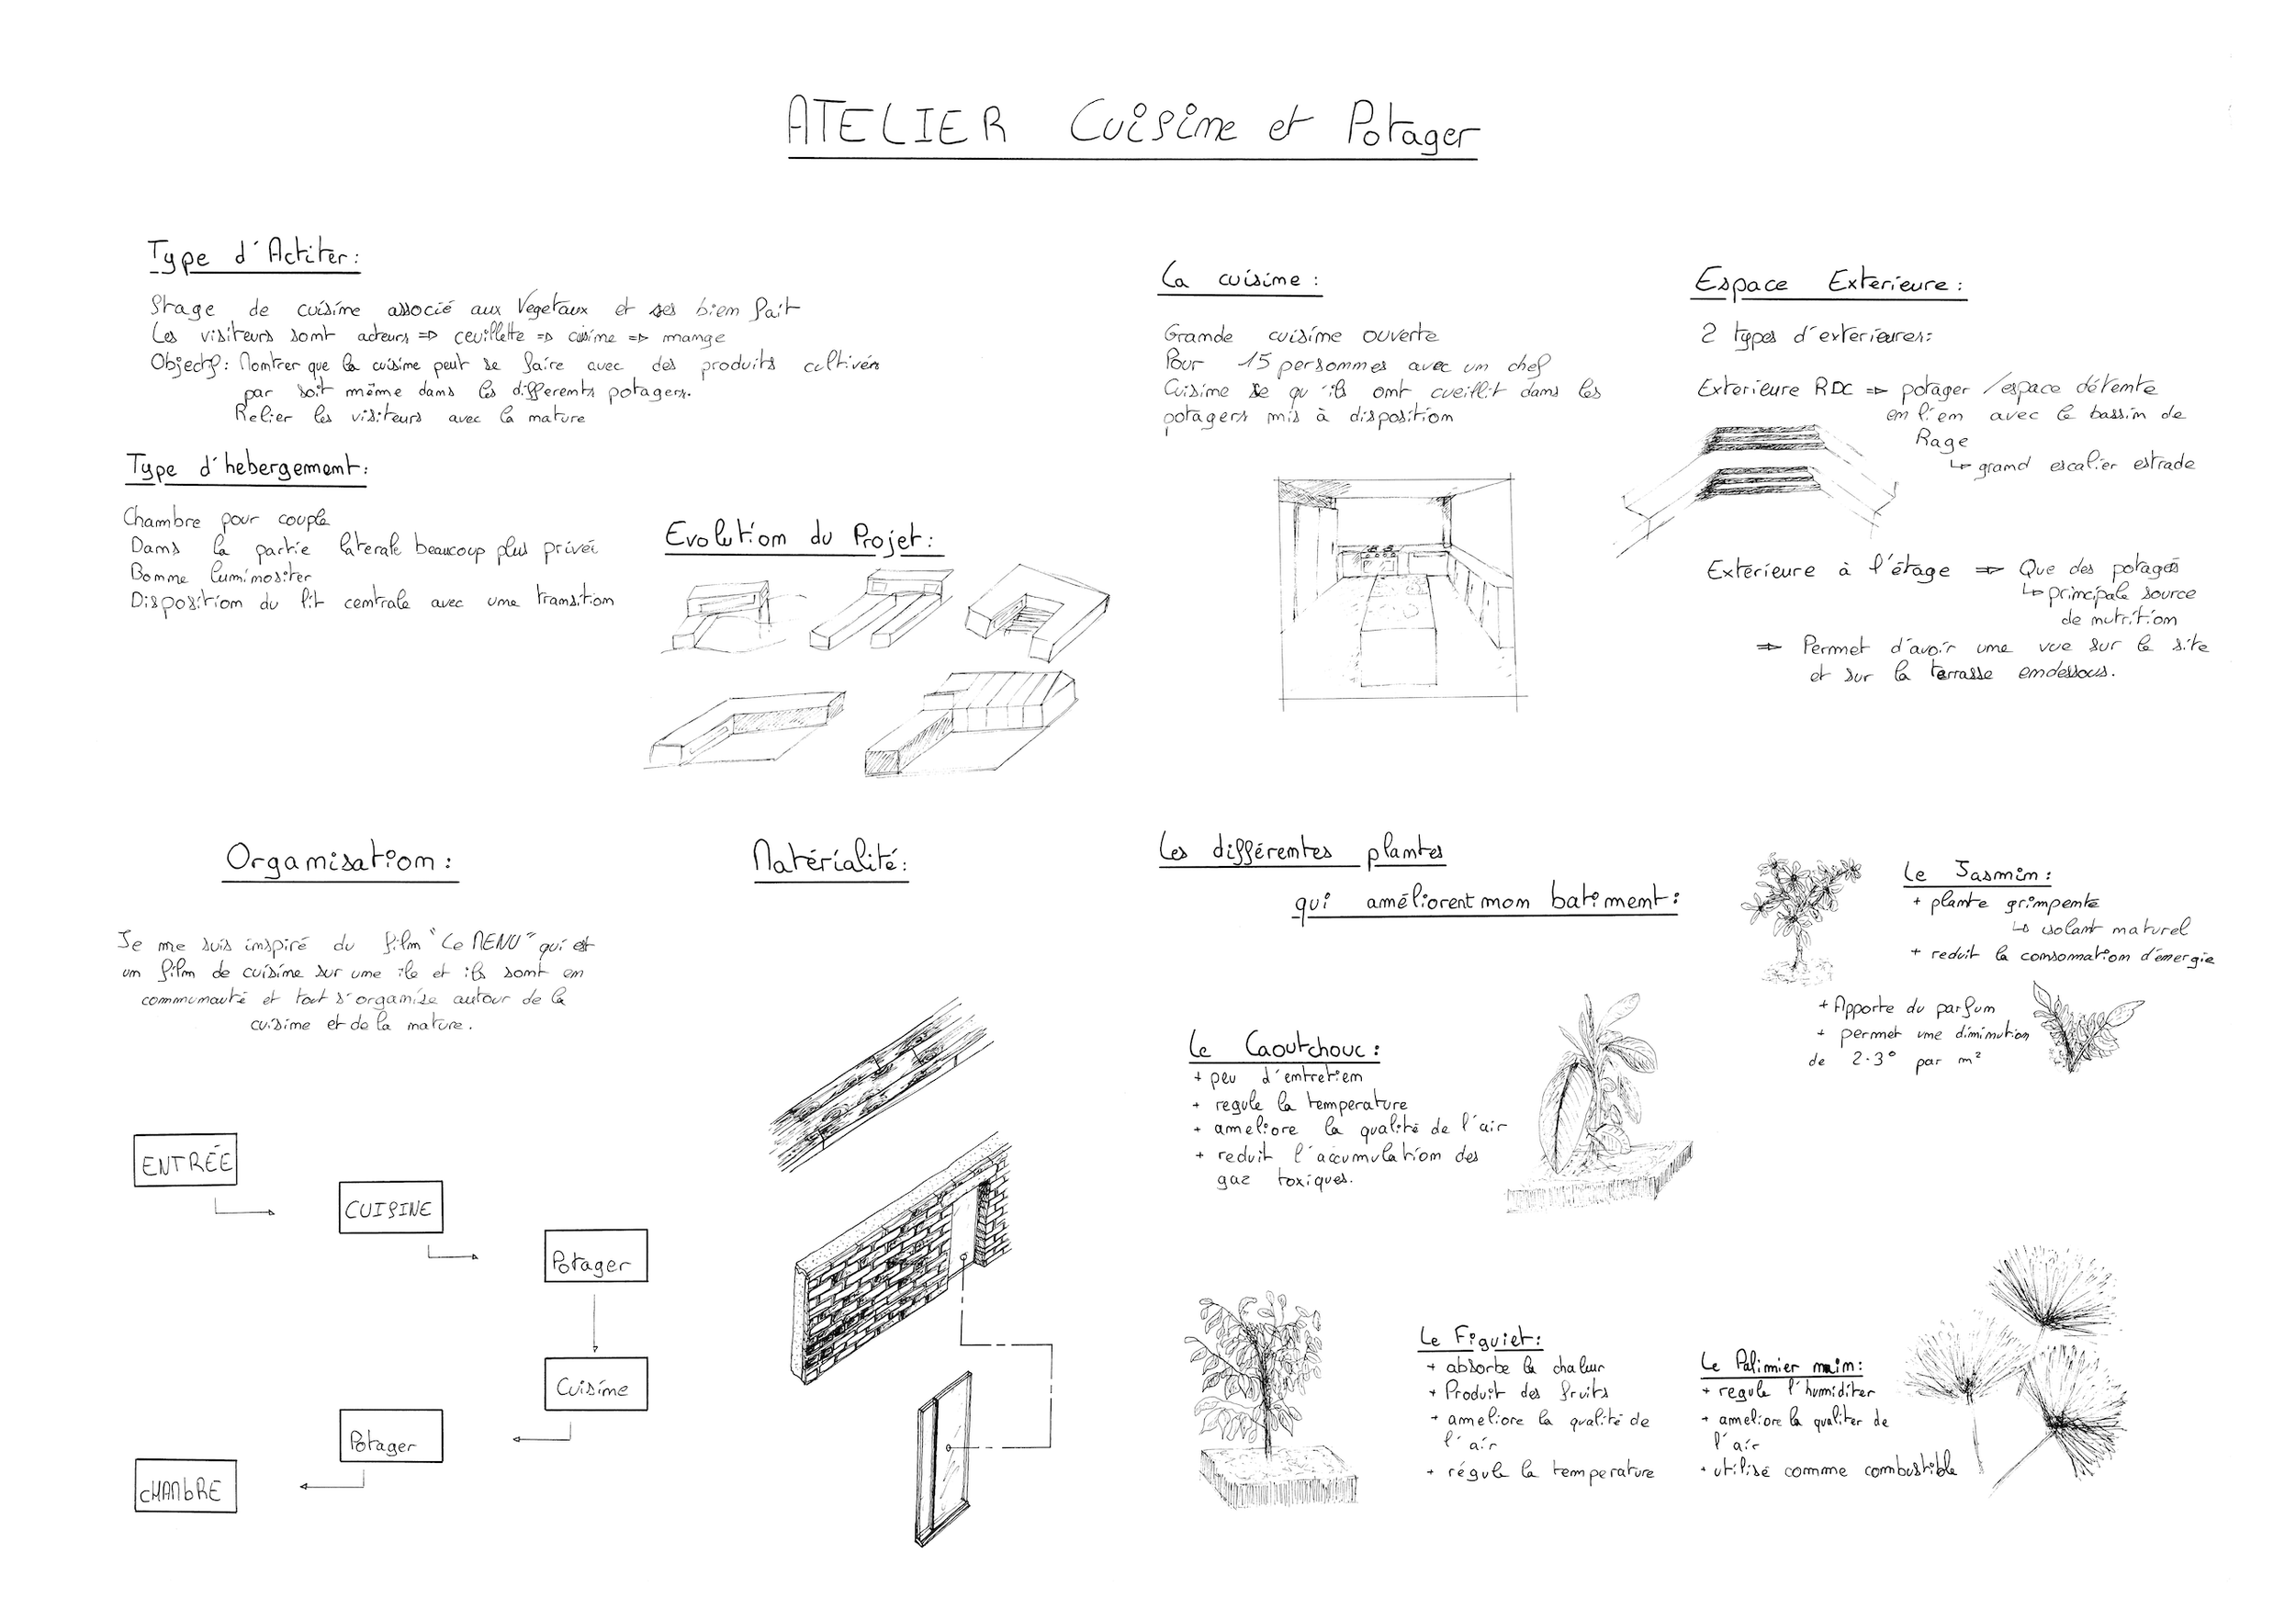 ATELIER Cuisine et Potager
Type d'Actiter:
Stage de cuisine associé aux Vegetaux et ses bien fait
Les visiteurs sont acteurs => ceuillette => cuisine => mange
Objectif: Montrer que la cuisine peut se faire avec des produits cultivés
par soit même dans les differents potagers.
Relier les visiteurs avec la nature
Type d'hebergement:
Chambre pour couple
Dans la partie laterale beaucoup plus privée
Bonne luminositer
Disposition du lit centrale avec une transition
Evolution du Projet:
La cuisine:
Grande cuisine ouverte
Pour 15 personnes avec un chef
Cuisine se qu'ils ont cueillit dans les
potagers mis à disposition
Espace Exterieure:
2 types d'exterieures:
Exterieure RDC => potager / espace détente
en lien avec le bassin de
Rage
↳ grand escalier estrade
Exterieure à l'étage => Que des potagés
↳ principale source
de nutrition
=> Permet d'avoir une vue sur le site
et sur la terrasse endessous.
Organisation:
Je me suis inspiré du film "Le MENU" qui est
un film de cuisine sur une île et ils sont en
communauté et tout s'organise autour de la
cuisine et de la nature.
ENTRÉE
CUISINE
Potager
Cuisine
Potager
CHAMbRE
Matérialité:
Les différentes plantes
qui améliorent mon batiment:
Le Jasmin:
+ plante grimpente
↳ isolant naturel
+ reduit la consomation d'énergie
+ Apporte du parfum
+ permet une diminution
de 2-3° par m²
Le Caoutchouc:
+ peu d'entretien
+ regule la temperature
+ ameliore la qualité de l'air
+ reduit l'accumulation des
gaz toxiques.
Le Figuiet:
+ absorbe la chaleur
+ Produit des fruits
+ ameliore la qualité de
l'air
+ régule la temperature
Le Palimier nain:
+ regule l'humiditer
+ ameliore la qualiter de
l'air
+ utilisé comme combustible